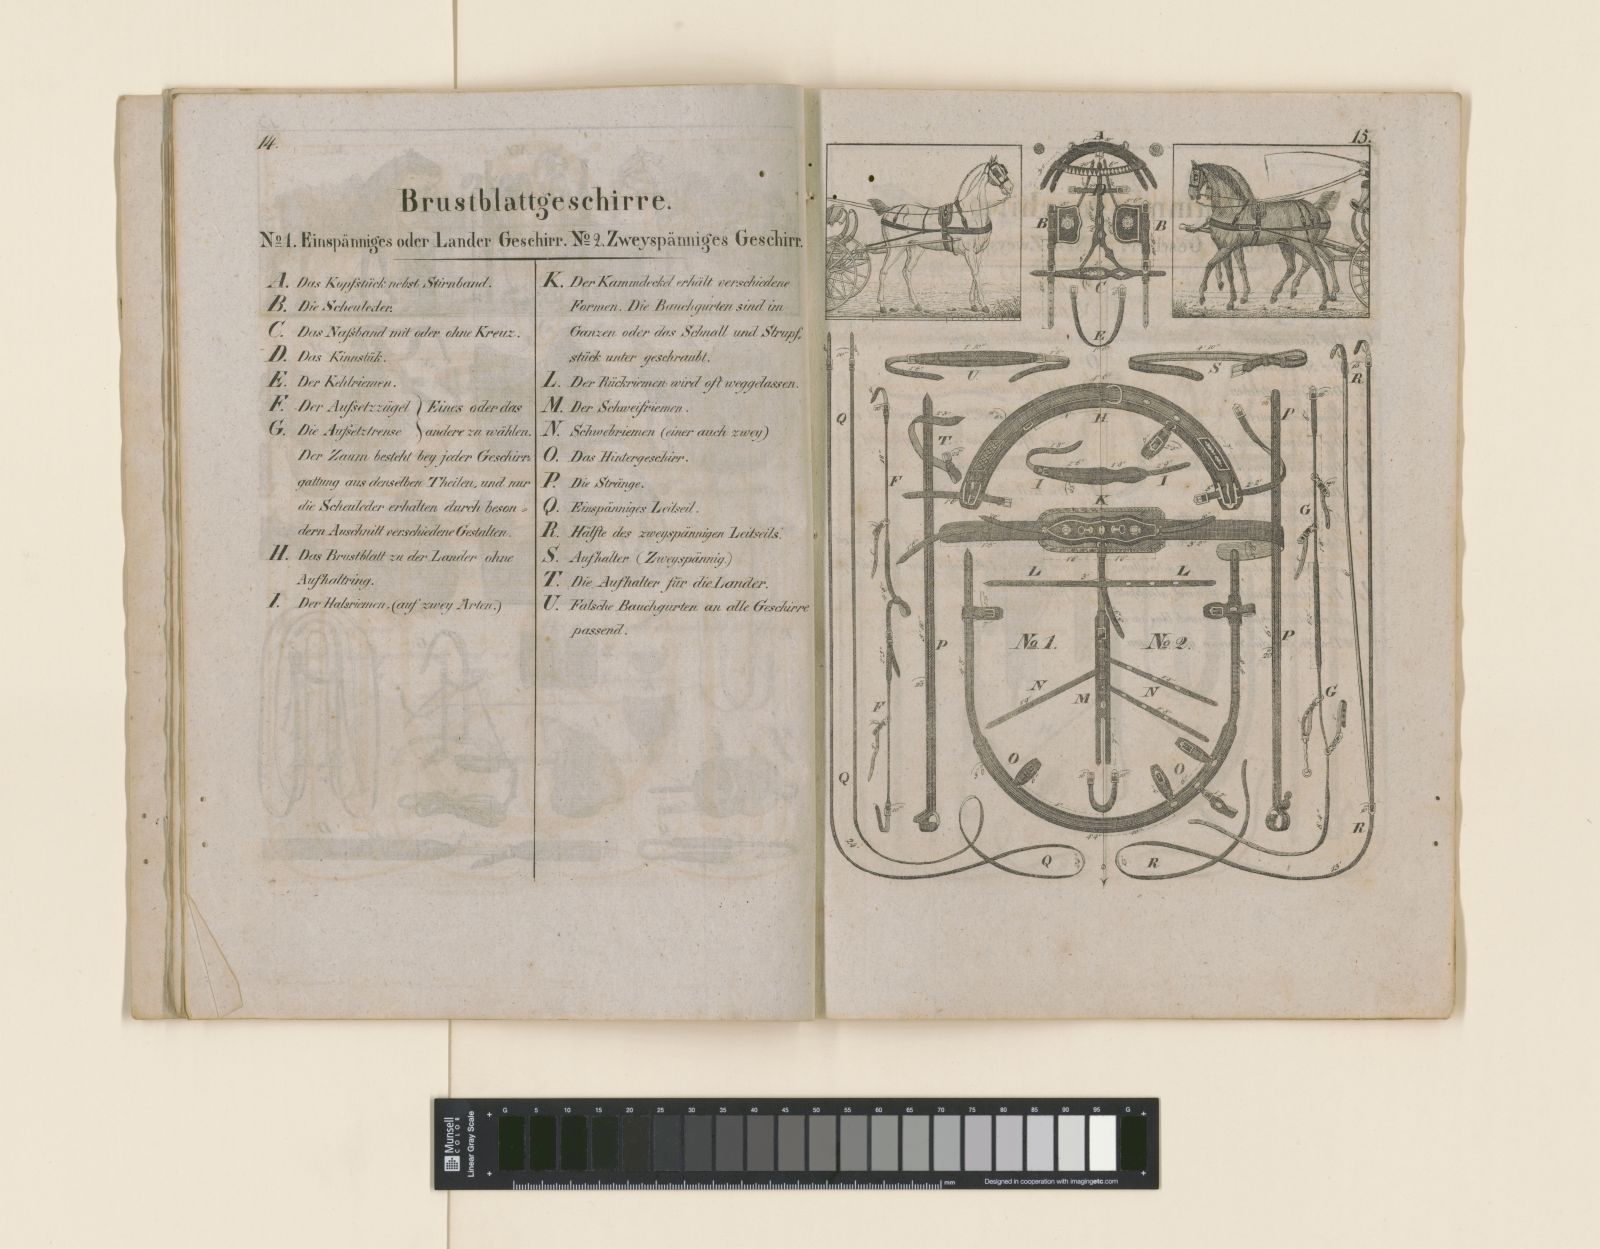 14.
Brustblattgeschirre.
No 1. Einspänniges oder Lander Geschirr. No 2. Zweyspänniges Geschirr.
A. Das Kopfstück nebst Stirnband.
B. Die Scheuleder.
C. Das Naßband mit oder ohne Kreuz.
D. Das Kinnstük.
E. Der Kehlriemen.
F. Der Aufsetzzügel } Eines oder das
G. Die Aufsetztrense } andere zu wählen.
Der Zaum besteht bey jeder Geschirr
gattung aus denselben Theilen, und nur
die Scheuleder erhalten durch beson=
dern Auschnitt verschiedene Gestalten.
H. Das Brustblatt zu der Lander ohne
Aufhaltring.
I. Der Halsriemen. (auf zwey Arten.)
K. Der Kammdeckel erhält verschiedene
Formen. Die Bauchgurten sind im
Ganzen oder das Schnall und Strupf=
stück unter geschraubt.
L. Der Rückriemen wird oft weggelassen.
M. Der Schweifriemen.
N. Schwebriemen (einer auch zwey)
O. Das Hintergeschirr.
P. Die Stränge.
Q. Einspänniges Leitseil.
R. Hälfte des zweyspännigen Leitseils.
S. Aufhalter (Zweyspännig.)
T. Die Aufhalter für die Lander.
U. Falsche Bauchgurten an alle Geschirre
passend.
15.
A
B
B
C
E
U
S
R
Q
H
P
T
F
I
I
K
G
L
L
No 1.
No 2.
P
P
N
M
N
F
G
O
O
Q
R
Q
R
Munsell
COLOR
Linear Gray Scale
G 5 10 15 20 25 30 35 40 45 50 55 60 65 70 75 80 85 90 95 G
mm
Designed in cooperation with imagingetc.com